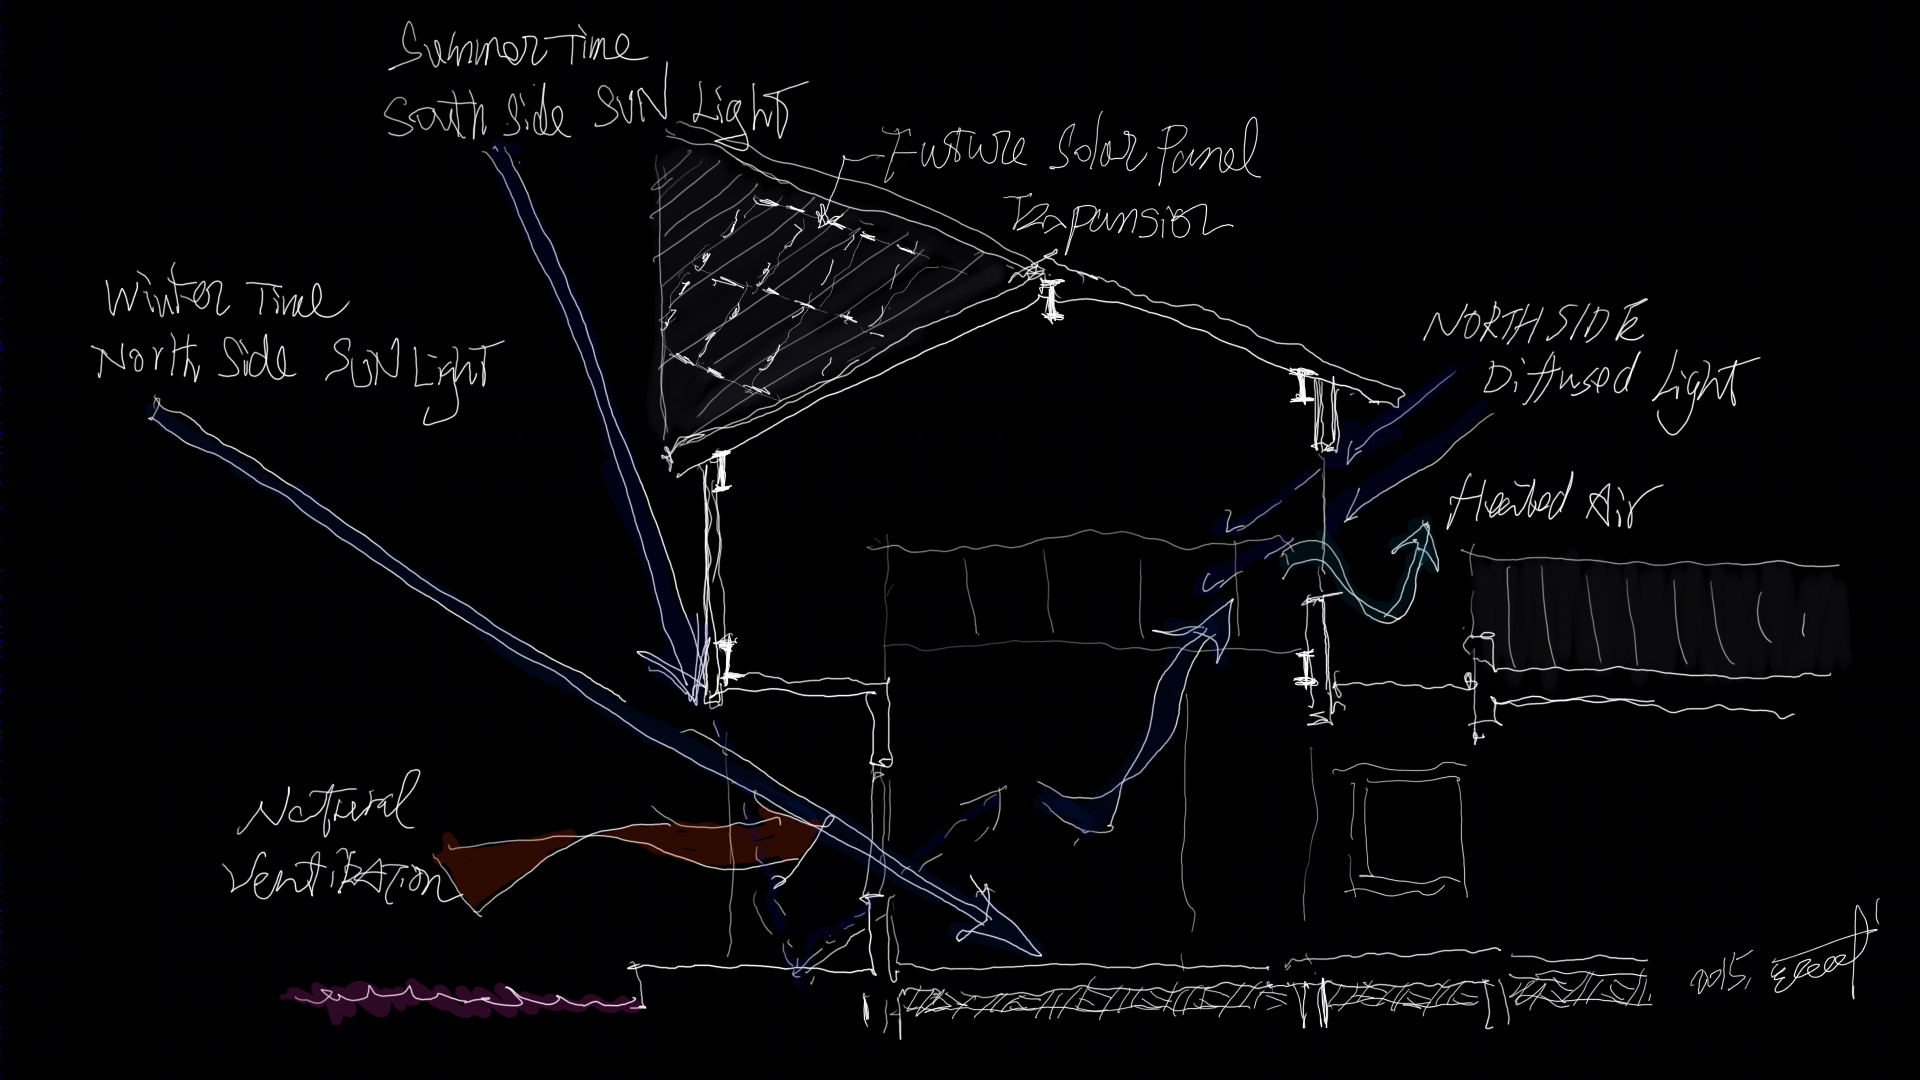 Summer Time
South Side SUN Light
Future Solar Panel
Expansion
Winter Time
North Side SUN Light
NORTH SIDE
Diffused Light
Heated Air
Natural
Ventilation
2015.